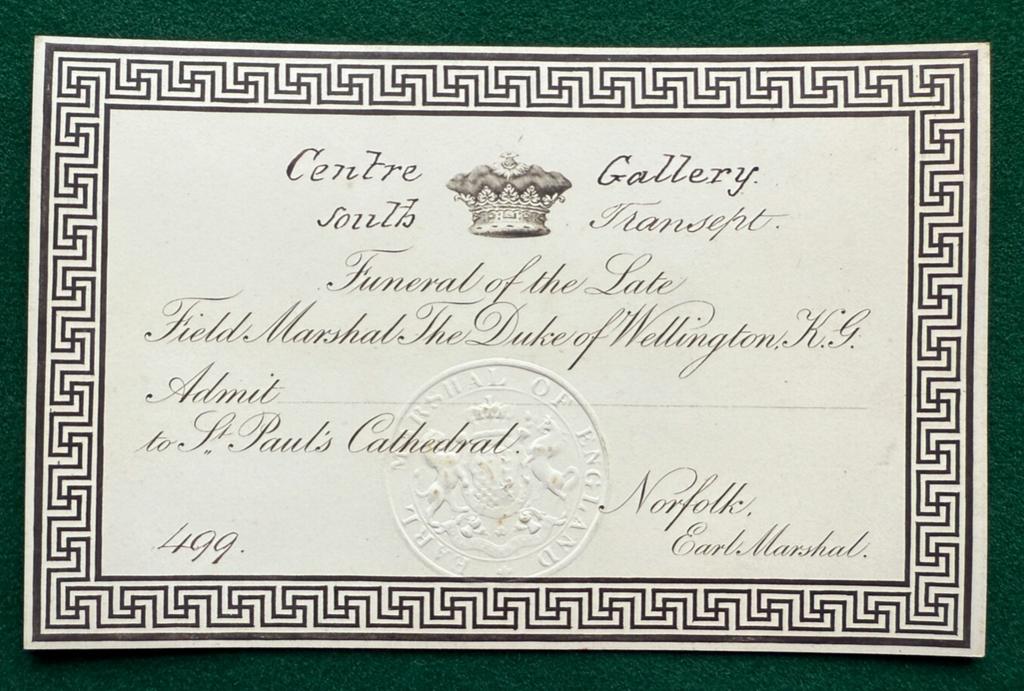 Centre Gallery.
South Transept.
Funeral of the Late
Field Marshal The Duke of Wellington, K.G.
Admit
to St. Paul's Cathedral.
Norfolk,
499. Earl Marshal.
EARL MARSHAL OF ENGLAND